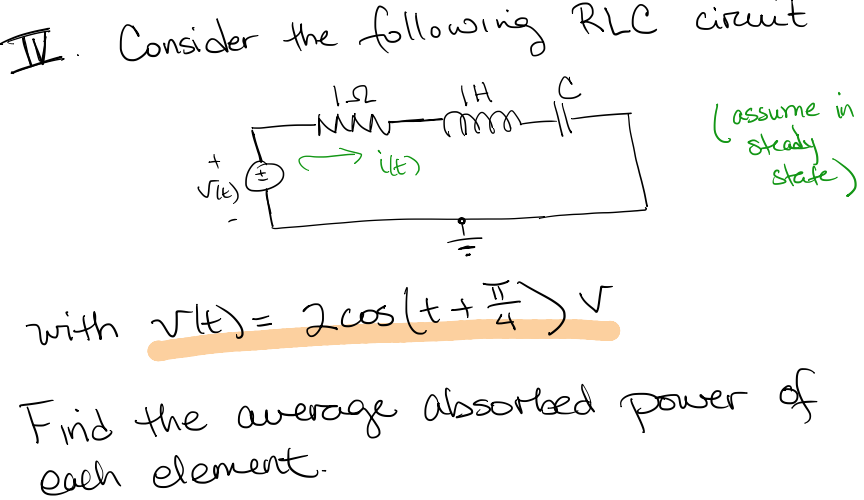 IV. Consider the following RLC circuit
1Ω 1H C
(assume in
steady
state)
+
v(t)
-
±
i(t)
with v(t) = 2cos(t + π/4) V
Find the average absorbed power of
each element.